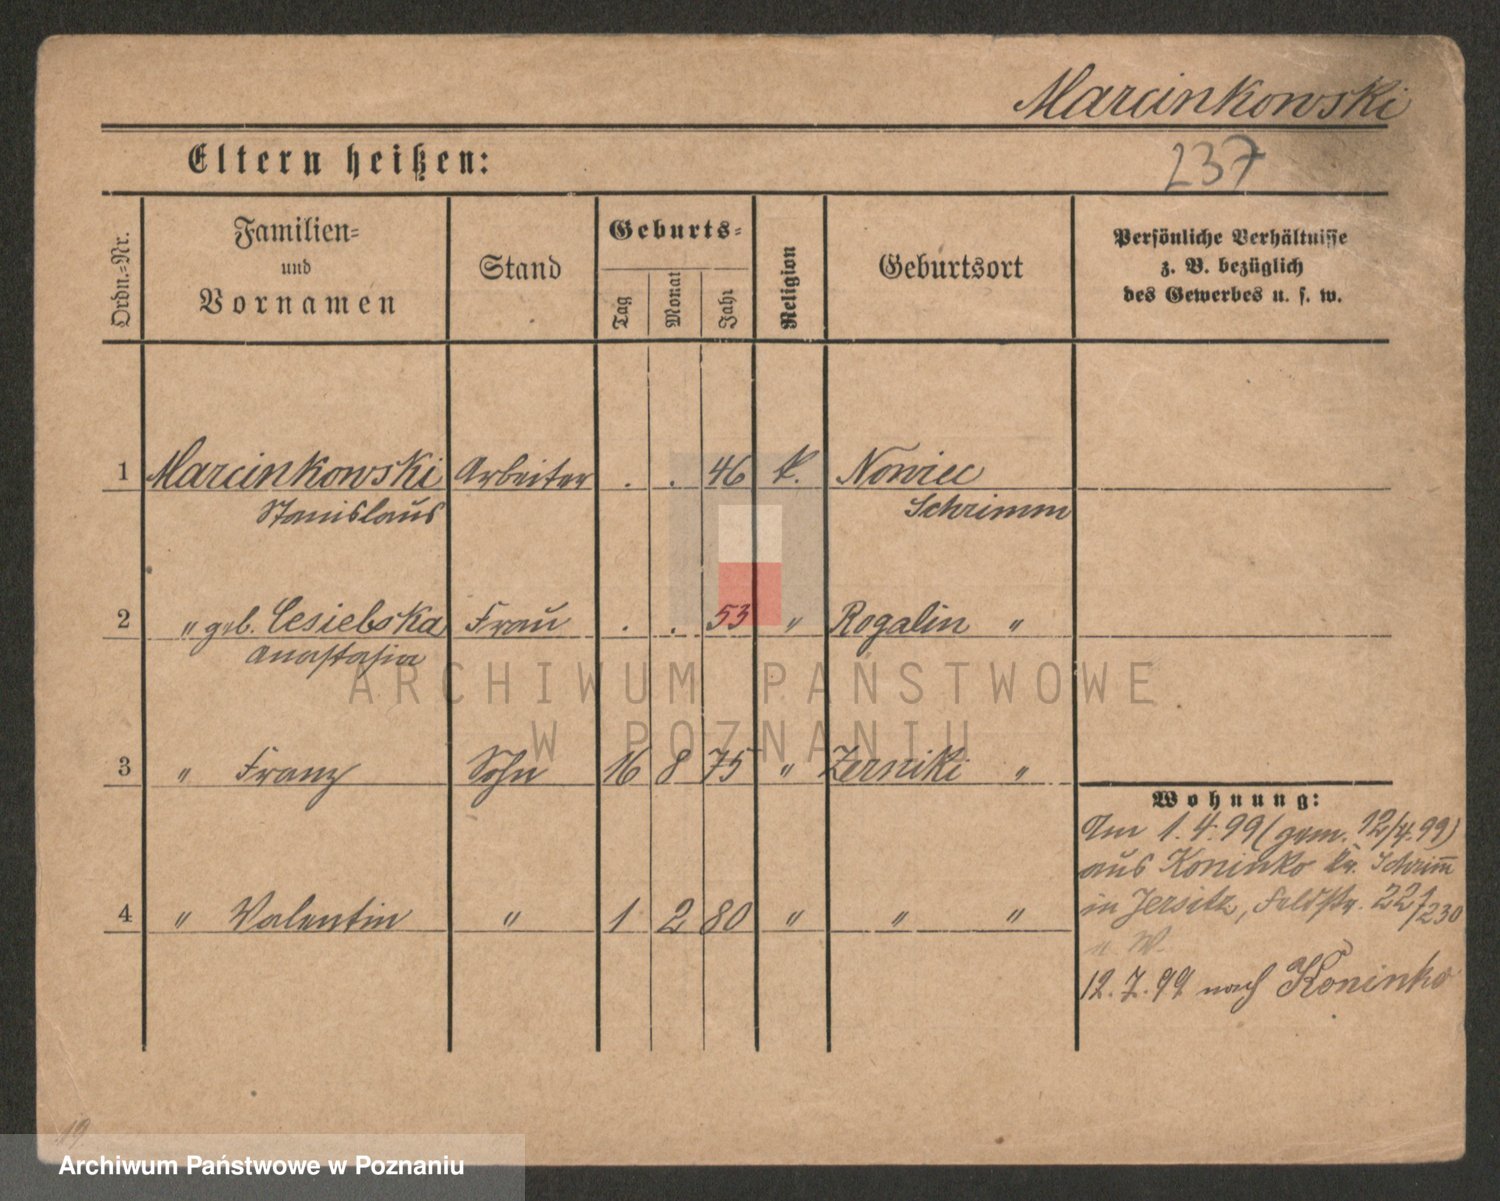 Marcinkowski
237
Eltern heißen:
Ordn.-Nr.
Familien-
und
Vornamen
Stand
Geburts-
Tag
Monat
Jahr
Religion
Geburtsort
Persönliche Verhältnisse
z. B. bezüglich
des Gewerbes u. s. w.
1 Marcinkowski Arbeiter . . 46 k. Nowiec
Stanislaus Schrimm
2 " geb. Cesielska Frau . . 53 " Rogalin "
Anastasia
3 " Franz Sohn 16 8 75 " Zerniki "
4 " Valentin " 1 2 80 " " "
Wohnung:
Am 1.4.99 (gem. 12/4.99)
aus Koninko Kr. Schrimm
in Jersitz, Feldstr. 221/230
12.7.99 nach Koninko
19
ARCHIWUM PAŃSTWOWE
W POZNANIU
Archiwum Państwowe w Poznaniu